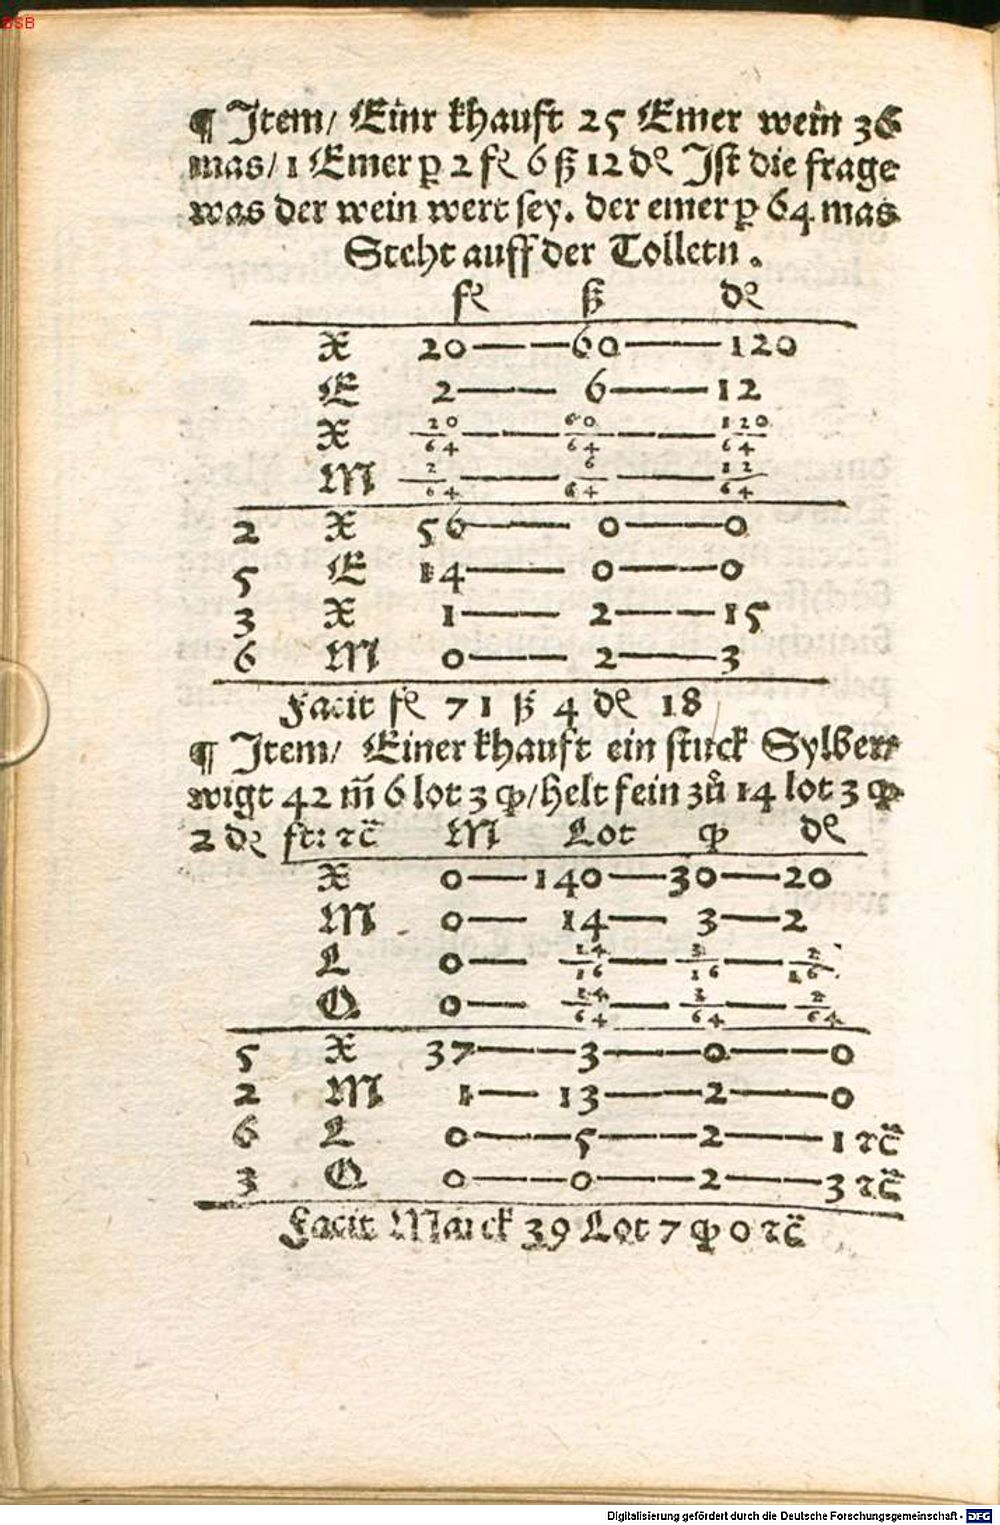 BSB
¶ Item/ Einr khauft 25 Emer wein 36
mas/ 1 Emer p 2 fl 6 ß 12 dɇ Ist die frage
was der wein wert sey. der emer p 64 mas
Steht auff der Tolletn.
fl ß dɇ
X 20 — 60 — 120
E 2 — 6 — 12
X 20/64 — 60/64 — 120/64
M 2/64 — 6/64 — 12/64
2 X 56 — 0 — 0
5 E 14 — 0 — 0
3 X 1 — 2 — 15
6 M 0 — 2 — 3
Facit fl 71 ß 4 dɇ 18
¶ Item/ Einer khauft ein stuck Sylber
wigt 42 m̄ 6 lot 3 qͥ/ helt fein zů 14 lot 3 qͥ
2 dɇ ft: ꝛc̈ M Lot qͥ dɇ
X 0 — 140 — 30 — 20
M 0 — 14 — 3 — 2
L 0 — 14/16 — 3/16 — 2/16
Q 0 — 14/64 — 3/64 — 2/64
5 X 37 — 3 — 0 — 0
2 M 1 — 13 — 2 — 0
6 L 0 — 5 — 2 — 1 ꝛc̈
3 Q 0 — 0 — 2 — 3 ꝛc̈
Facit Marck 39 Lot 7 qͥ 0 ꝛc̈
Digitalisierung gefördert durch die Deutsche Forschungsgemeinschaft - DFG